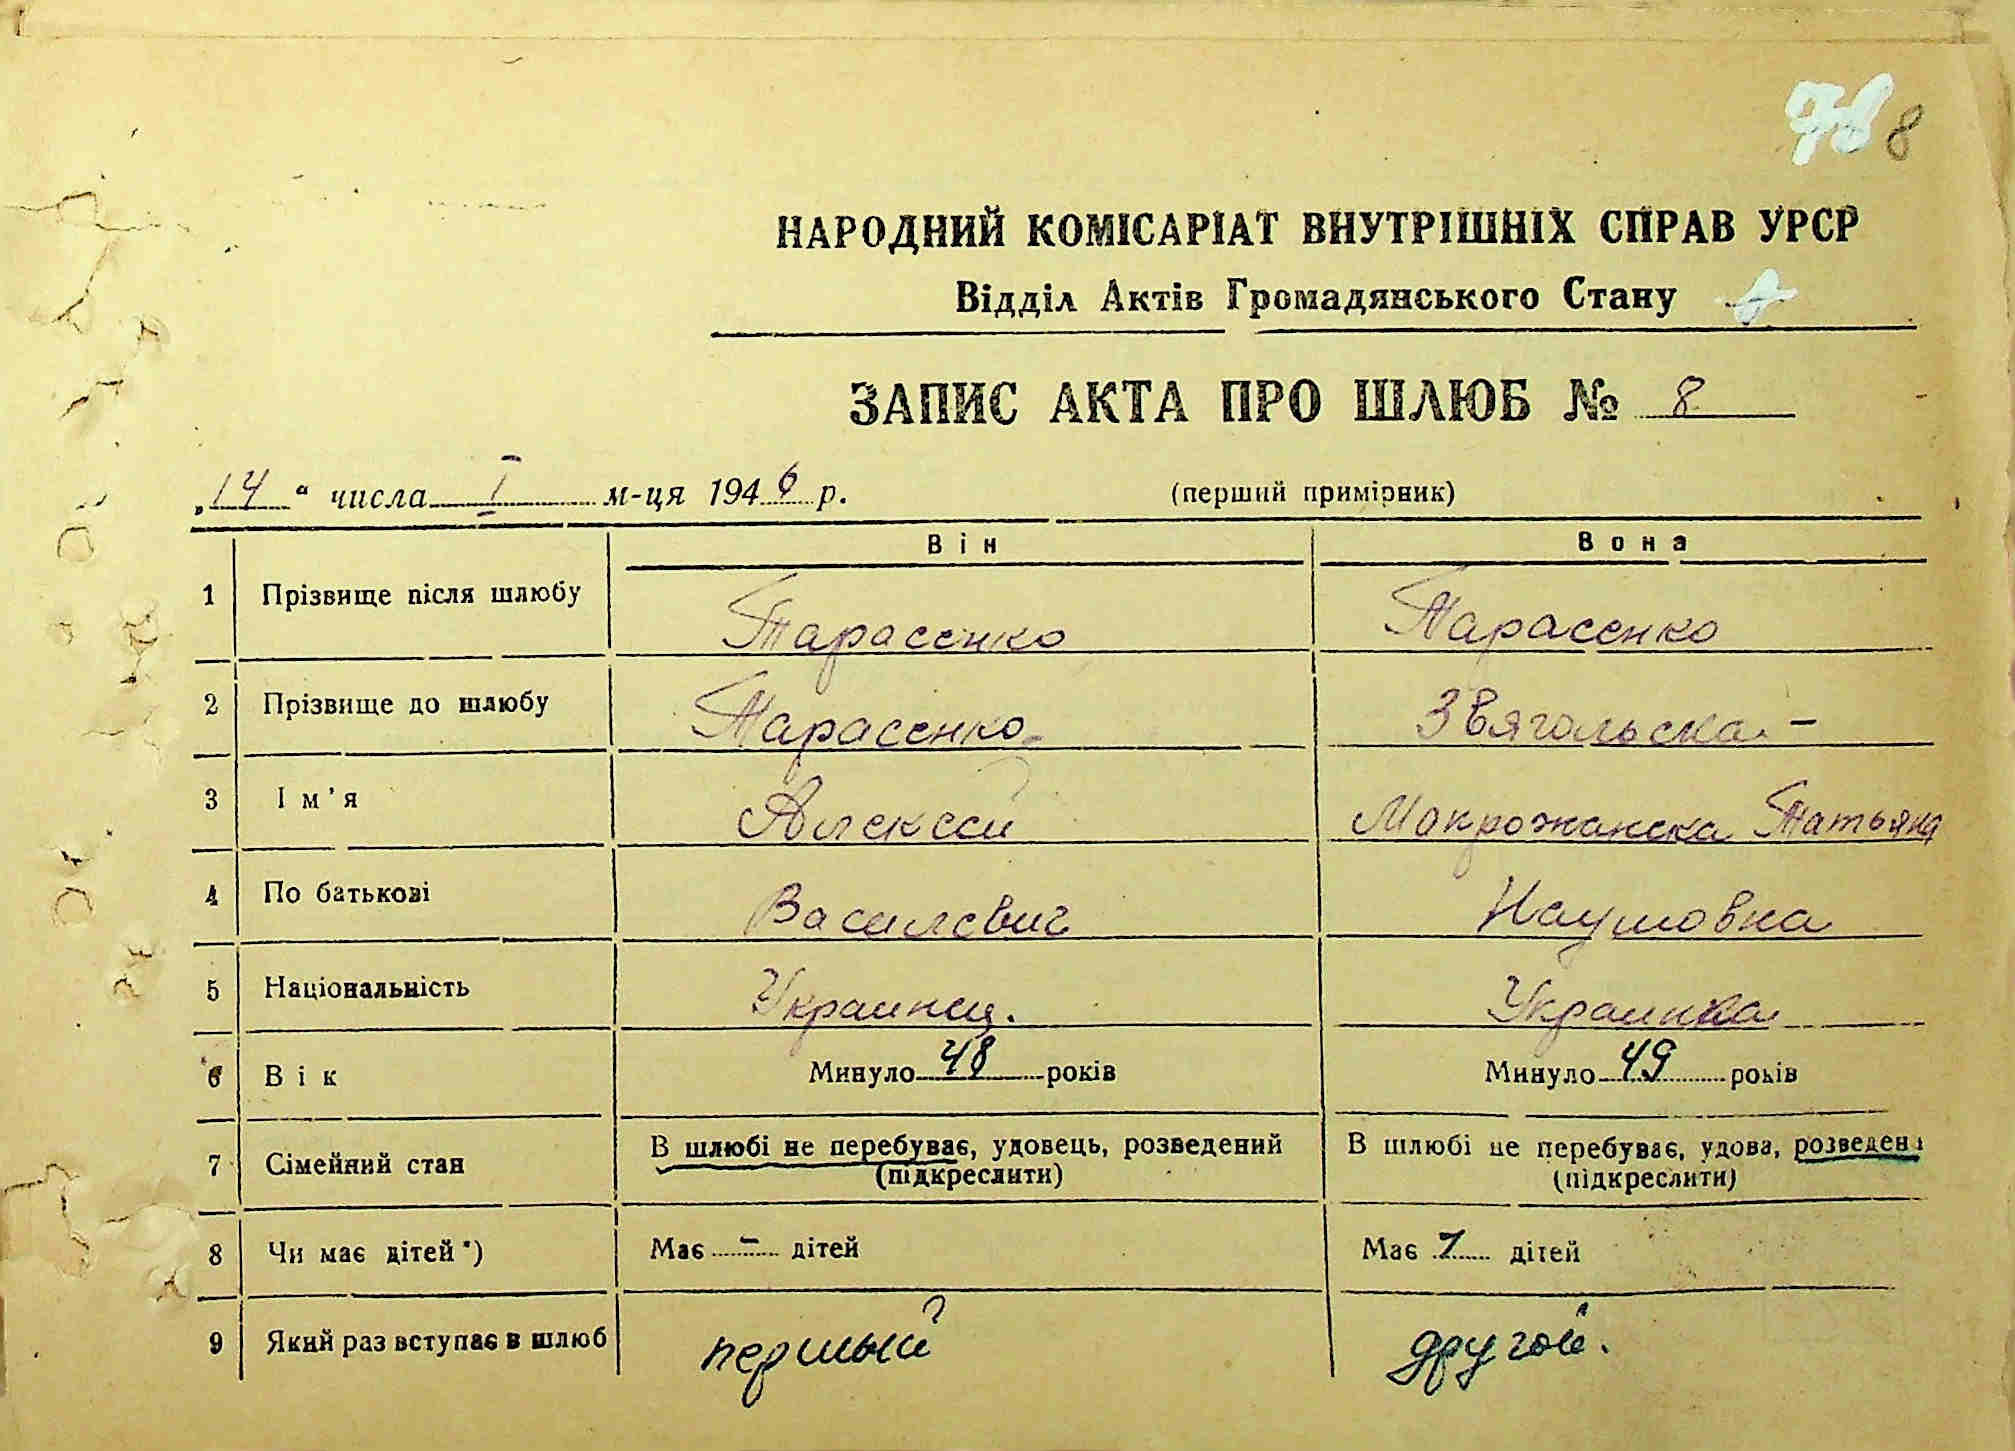 8
НАРОДНИЙ КОМІСАРІАТ ВНУТРІШНІХ СПРАВ УРСР
Відділ Актів Громадянського Стану
ЗАПИС АКТА ПРО ШЛЮБ № 8
„14“ числа I м-ця 1946 р. (перший примірник)
Він Вона
1 Прізвище після шлюбу Тарасенко Тарасенко
2 Прізвище до шлюбу Тарасенко Звягольска -
3 Ім’я Алексей Мокрожанска Татьяна
4 По батькові Василевич Наумовна
5 Національність Украинец. Украинка
6 Вік Минуло 48 років Минуло 49 років
7 Сімейний стан В шлюбі не перебуває, удовець, розведений В шлюбі не перебуває, удова, розведена
(підкреслити) (підкреслити)
8 Чи має дітей *) Має - дітей Має 7 дітей
9 Який раз вступає в шлюб першый другой.